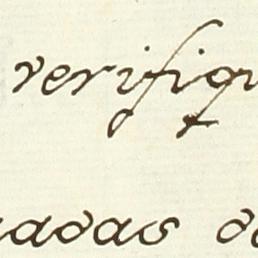 verifiqu
adas de